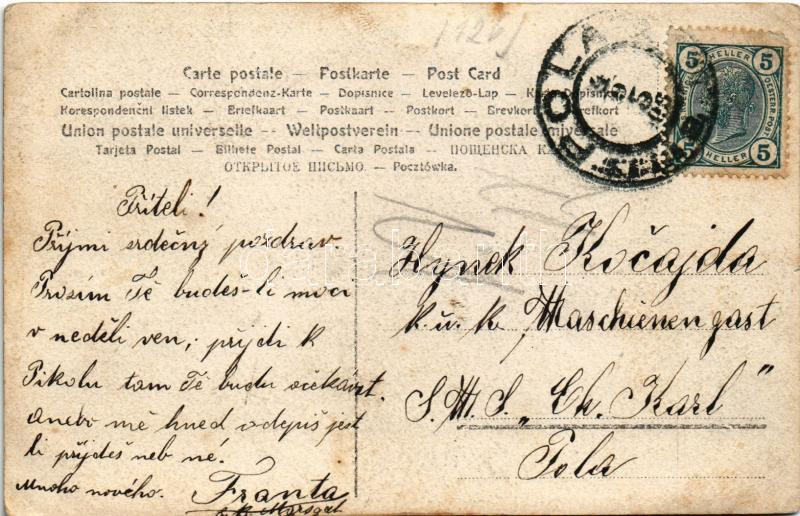 Carte postale – Postkarte – Post Card
Cartolina postale – Correspondenz-Karte – Dopisnice – Levelező-Lap –
Korespondenční listek – Briefkaart – Postkaart – Postkort – Brevkort – Brefkort
Union postale universelle -- Weltpostverein -- Unione postale universale
Tarjeta Postal – Bilhete Postal – Carta Postala – ПОЩЕНСКА
ОТКРЫТОЕ ПИСЬМО – Pocztówka.
POLA
5 HELLER 5
5 HELLER 5
Příteli!
Přijmi srdečný pozdrav.
Prosím Tě budeš-li moci
v neděli ven, přijdi k
Pikolu tam Tě budu očekávat.
anebo mě hned odepiš jest
li přijdeš neb né.
Mnoho nového.
Franta
Hynek Kočajda
k. u. k. Maschienengast
S. M. S. „Eh. Karl"
Pola